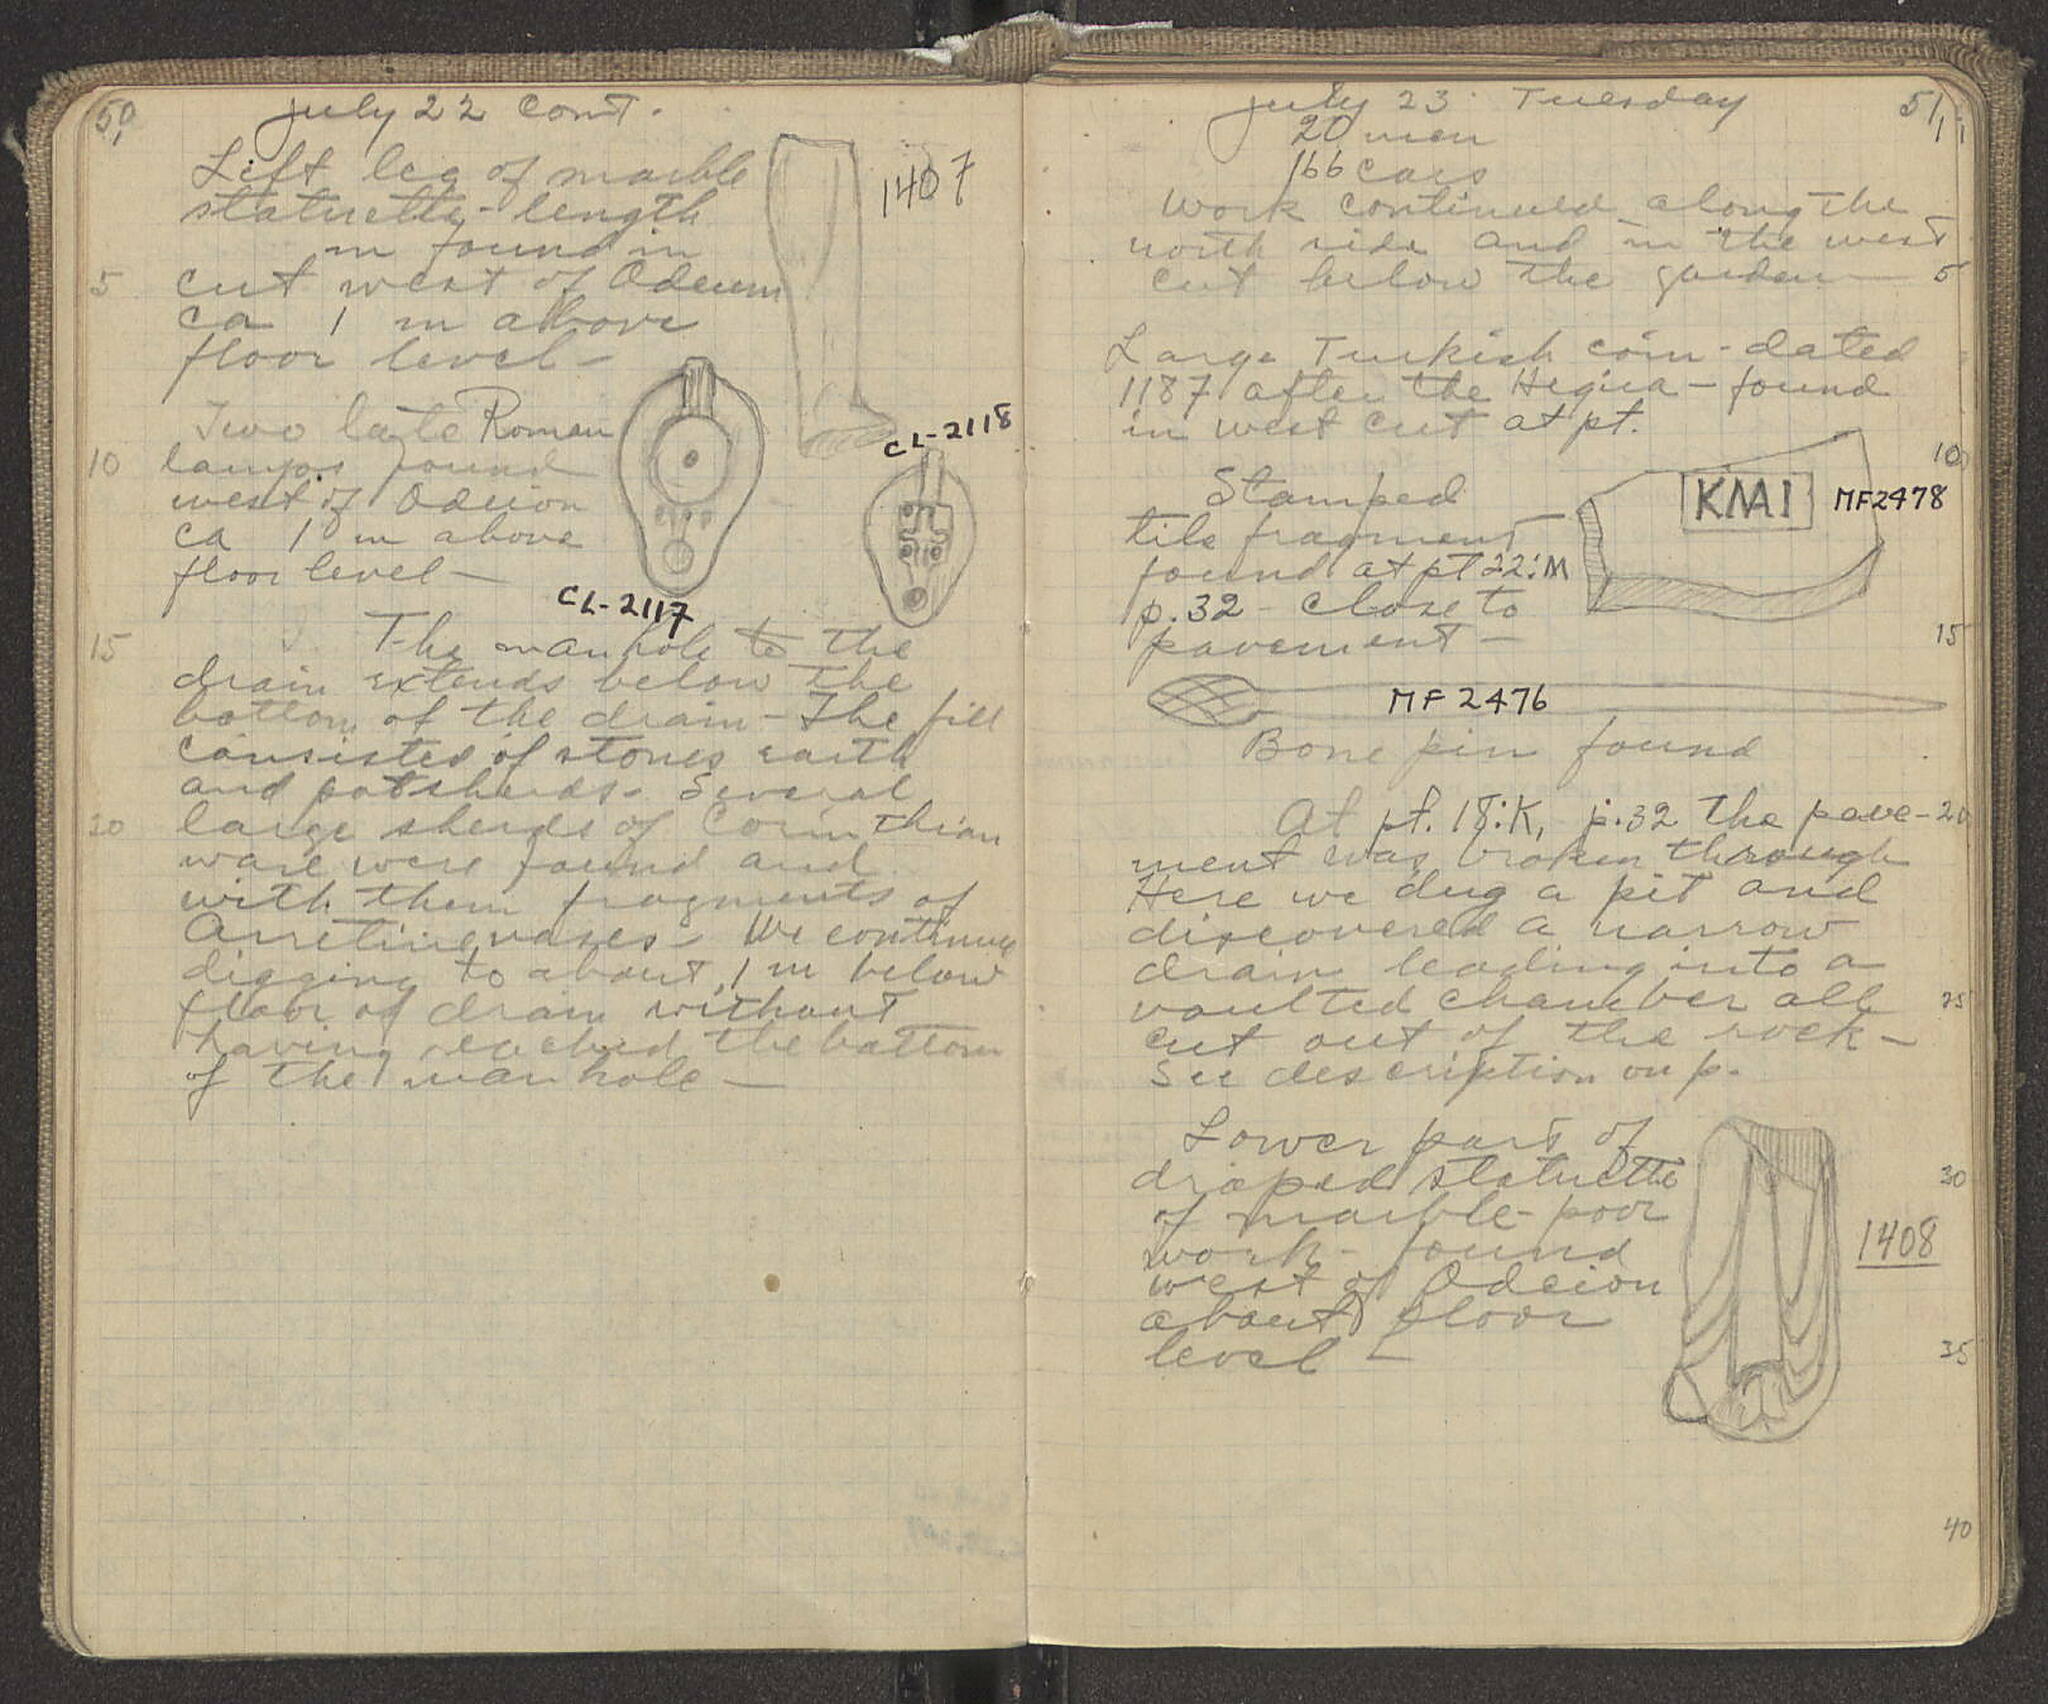 50
July 22 cont.
Left leg of marble
statuette - length
m found in
5 cut west of Odeum
ca 1 m above
floor level -
1407
Two late Roman
10 lamps found
west of Odeion
ca 1 m above
floor level -
CL-2118
CL-2117
15 The manhole to the
drain extends below the
bottom of the drain - The fill
consisted of stones earth
and potsherds - Several
20 large sherds of Corinthian
ware were found and
with them fragments of
Arretine vases - We continue
digging to about 1 m below
floor of drain without
having reached the bottom
of the manhole -
51
July 23 Tuesday
20 men
166 cars
Work continued along the
north side and in the west
cut below the garden - 5
Large Turkish coin - dated
1187 after the Hegira - found
in west cut at pt.
10
Stamped
tile fragment
found at pt 22:M
p.32 - close to
pavement - 15
KMAI
MF2478
MF 2476
Bone pin found
At pt. 18:K, p.32 the pave- 20
ment was broken through
Here we dug a pit and
discovered a narrow
drain leading into a
vaulted chamber all 25
cut out of the rock -
See description on p.
Lower part of
draped statuette 30
of marble - poor
work - found
west of Odeion
about floor
level - 35
1408
40